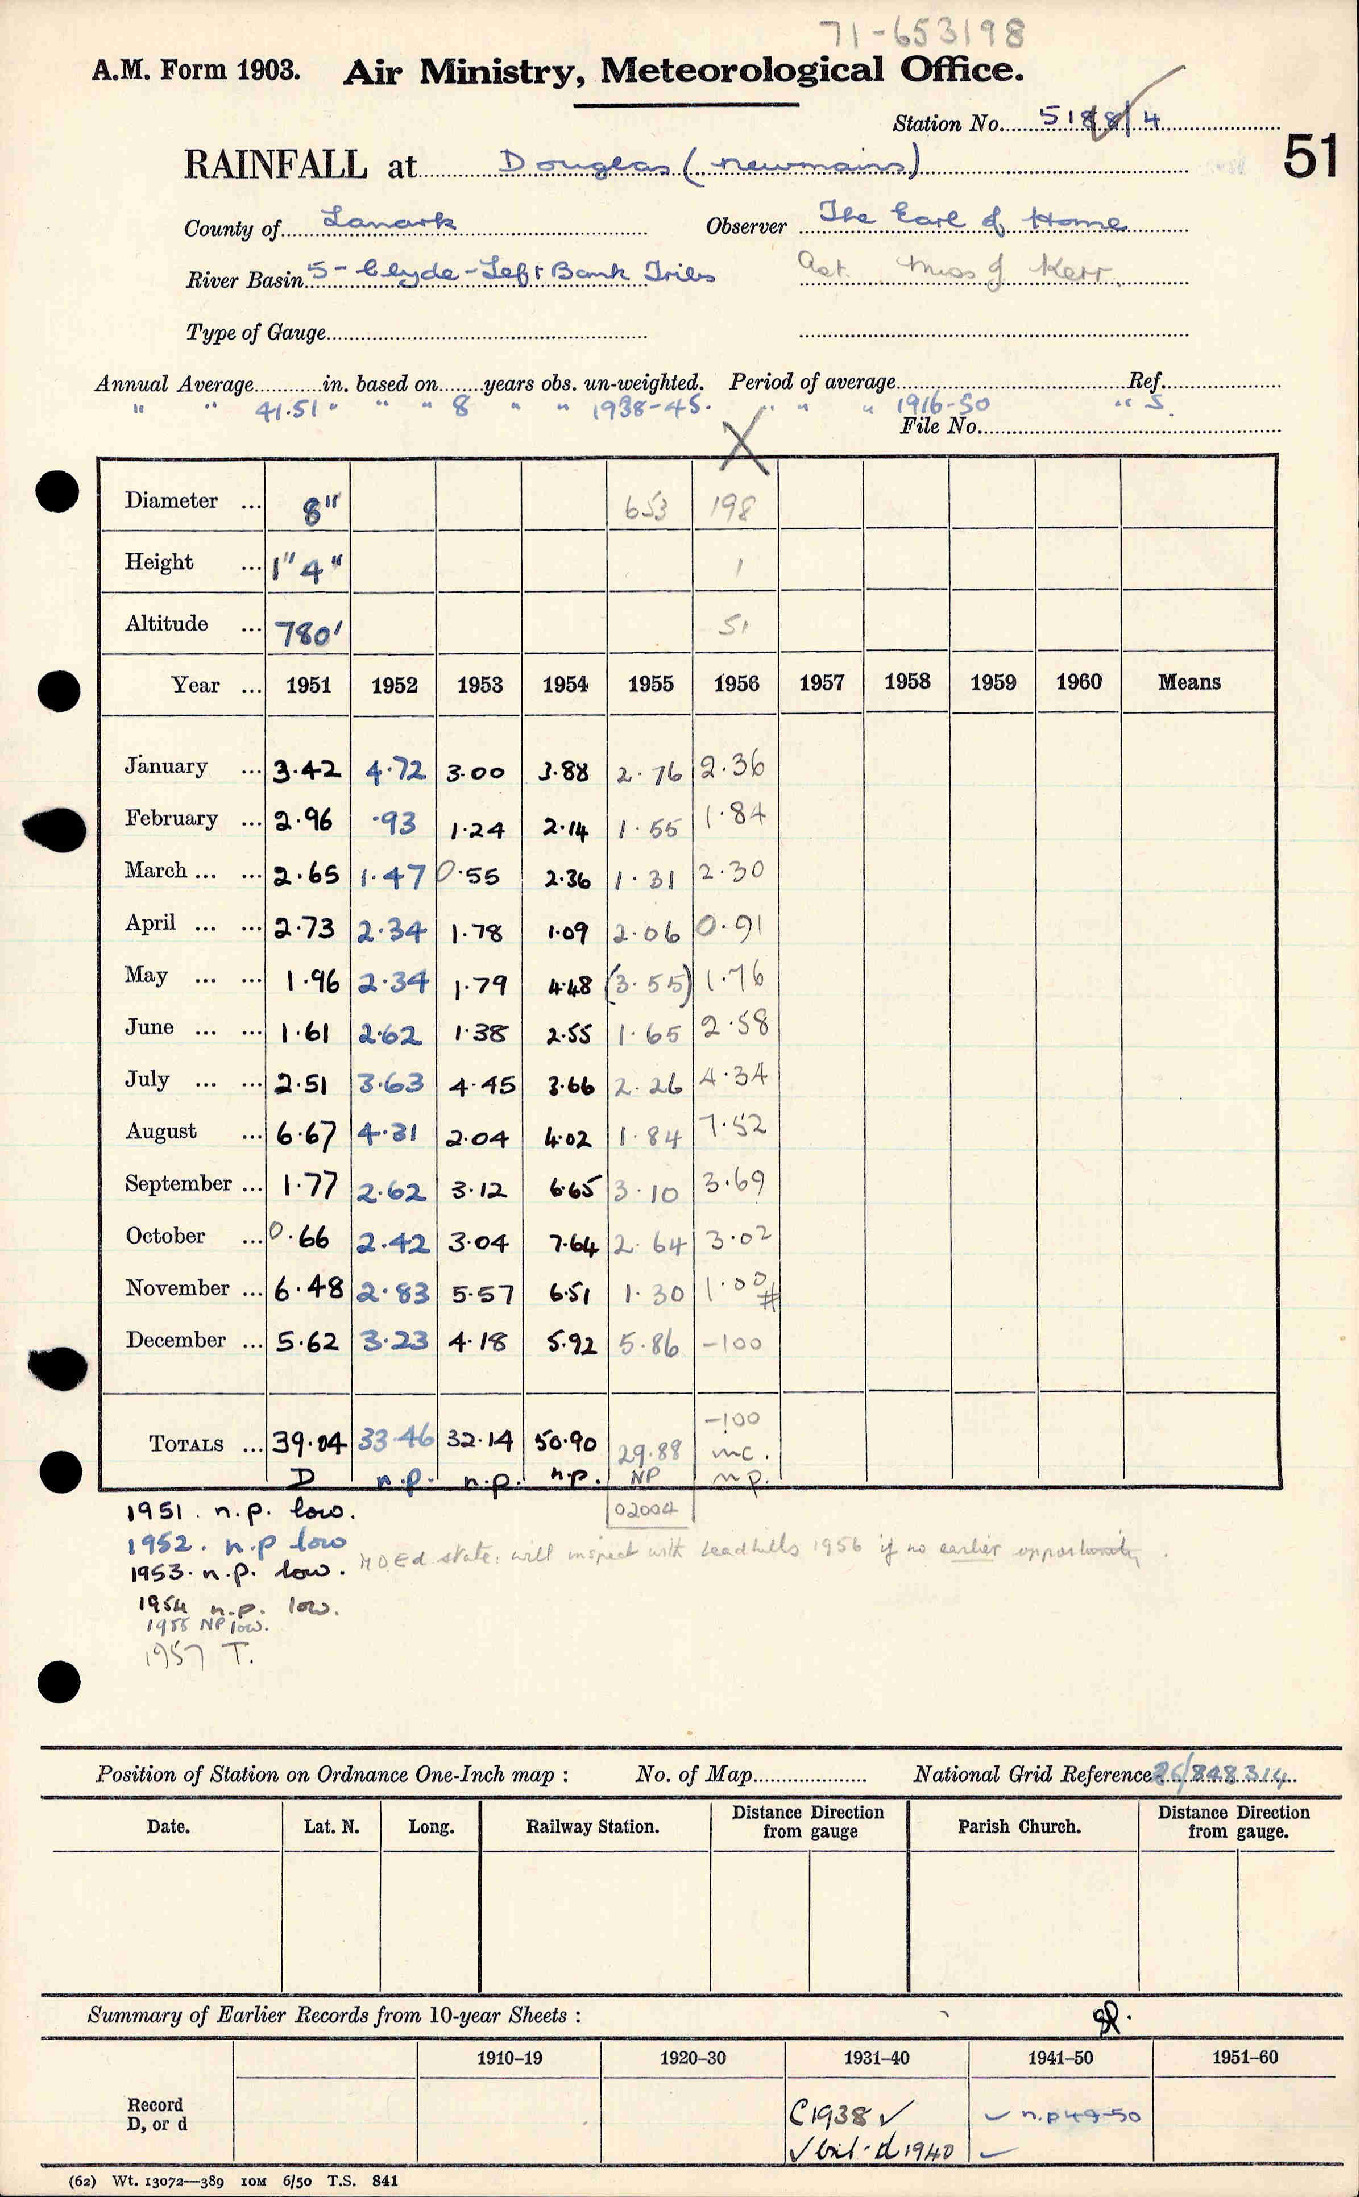 71-653198
A.M. Form 1903. Air Ministry, Meteorological Office.
Station No. 518 8/4
51
RAINFALL at Douglas (Newmains)
County of Lanark Observer The Earl of Home
River Basin 5 - Clyde - Left Bank Tribs Act. Miss J Kerr.
Type of Gauge
Annual Average in. based on years obs. un-weighted. Period of average Ref.
" " 41.51 " " " 8 " " 1938-45. " " " 1916-50 " " 5.
File No.
X
Diameter ... 8" 653 198
Height ... 1" 4" 1
Altitude ... 780' 51
Year ... 1951 1952 1953 1954 1955 1956 1957 1958 1959 1960 Means
January ... 3.42 4.72 3.00 3.88 2.76 2.36
February ... 2.96 .93 1.24 2.14 1.55 1.84
March ... ... 2.65 1.47 0.55 2.36 1.31 2.30
April ... ... 2.73 2.34 1.78 1.09 2.06 0.91
May ... ... 1.96 2.34 1.79 4.48 (3.55) 1.76
June ... ... 1.61 2.62 1.38 2.55 1.65 2.58
July ... ... 2.51 3.63 4.45 3.66 2.26 4.34
August ... 6.67 4.31 2.04 4.02 1.84 7.52
September ... 1.77 2.62 3.12 6.65 3.10 3.69
October ... 0.66 2.42 3.04 7.64 2.64 3.02
November ... 6.48 2.83 5.57 6.51 1.30 1.00 #
December ... 5.62 3.23 4.18 5.92 5.86 -100
-100
TOTALS ... 39.04 33.46 32.14 50.90 29.88 inc.
D n.p. n.p. n.p. NP n.p.
02004
1951. n.p. low.
1952. n.p low
1953. n.p. low.
MOEd state: will inspect with Leadhills 1956 if no earlier opportunity.
1954 n.p. low.
1955 NP low.
1957 T.
Position of Station on Ordnance One-Inch map : No. of Map National Grid Reference 26/848314
Date. Lat. N. Long. Railway Station. Distance Direction from gauge Parish Church. Distance Direction from gauge.
Summary of Earlier Records from 10-year Sheets :
1910–19 1920–30 1931–40 1941–50 1951–60
Record
D, or d
C1938 ✓ ✓ n.p 49-50
✓ d 1940 ✓
(62) Wt. 13072—389 10M 6/50 T.S. 841